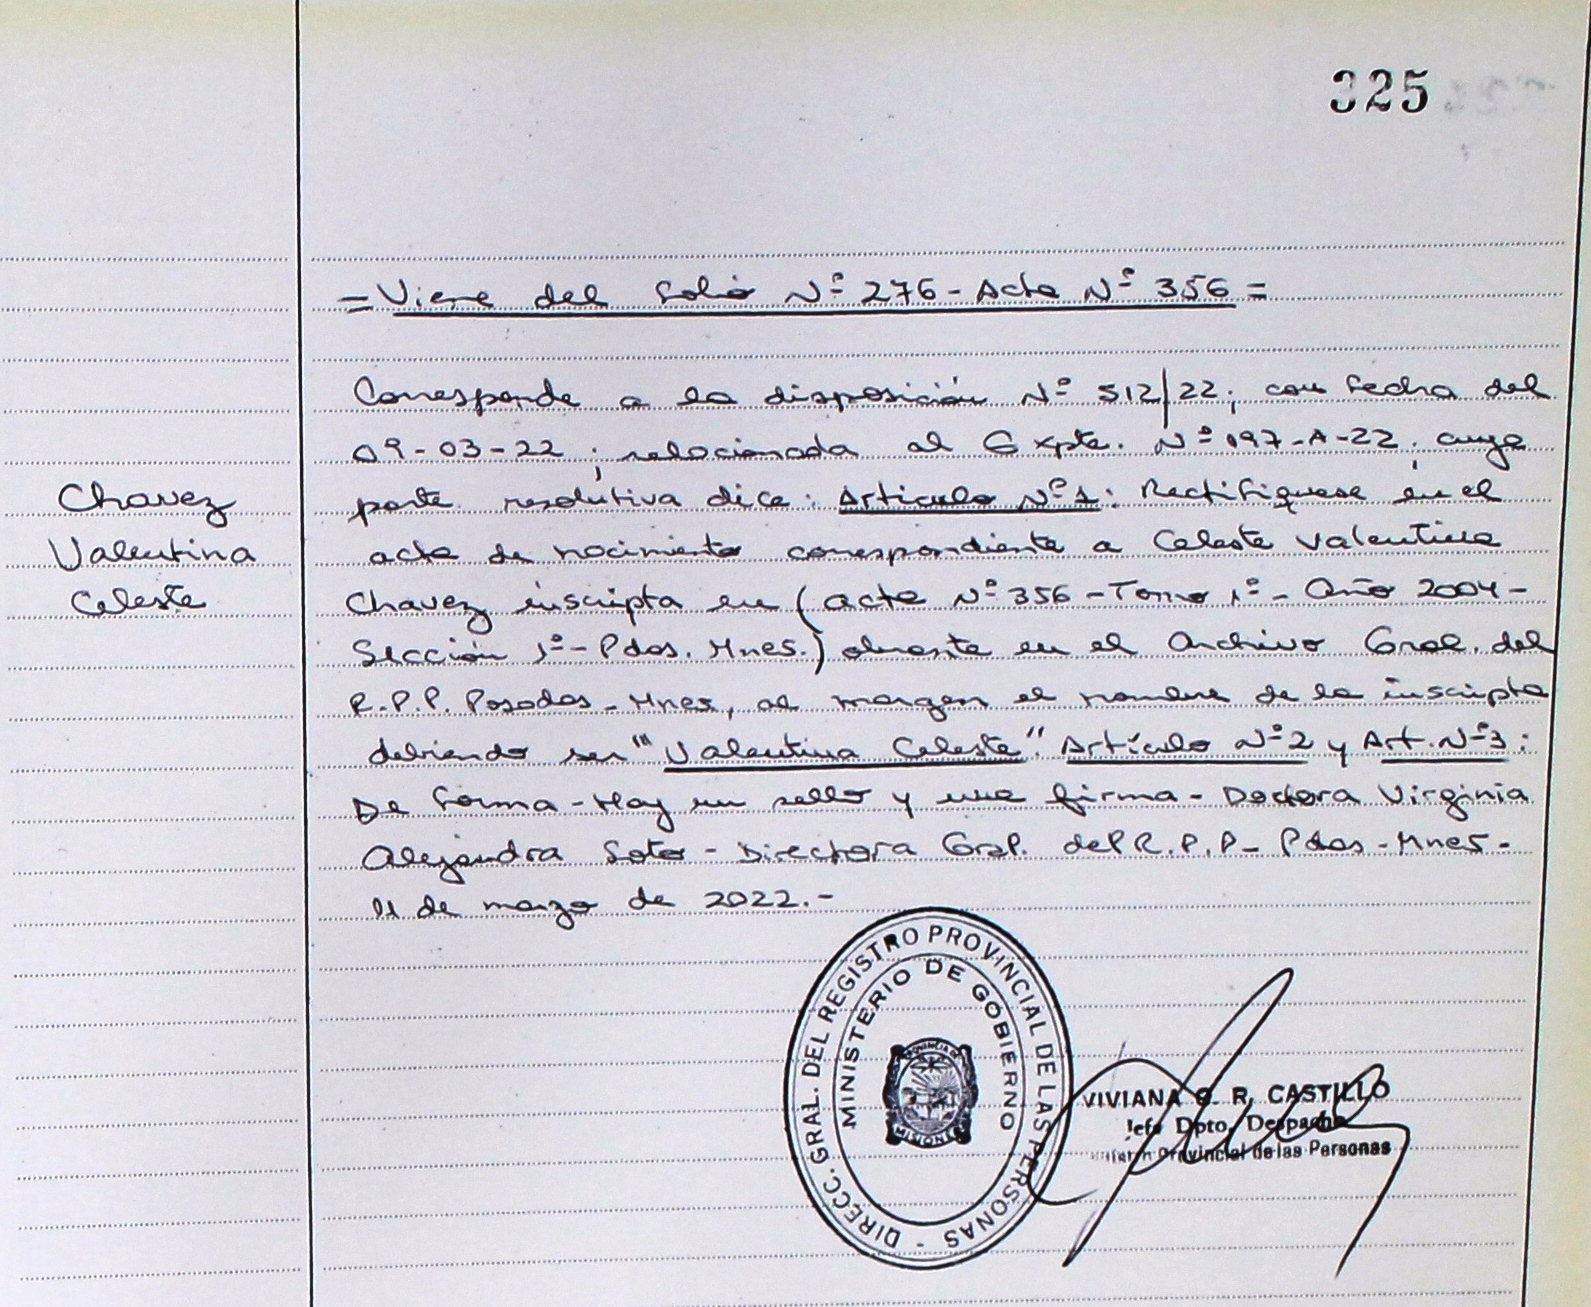 325
= Viene del folio Nº 276 - Acta Nº 356 =
Corresponde a la disposición Nº 512/22; con fecha del
09-03-22; relacionada al Expte. Nº 197-A-22; cuya
parte resolutiva dice: Articulo Nº 1: Rectifiquese en el
acta de nacimiento correspondiente a Celeste Valentina
Chavez inscripta en (acta Nº 356 - Tomo 1º - Año 2004 -
Sección 1º - Pdas. Mnes.) obrante en el Archivo Gral. del
R.P.P. Posadas - Mnes, al margen el nombre de la inscripta
debiendo ser "Valentina Celeste". Artículo Nº 2 y Art. Nº 3:
De forma - Hay un sello y una firma - Doctora Virginia
Alejandra Soto - Directora Gral. del R.P.P - Pdas - Mnes -
11 de marzo de 2022.-
Chavez
Valentina
Celeste
DIRECC. GRAL. DEL REGISTRO PROVINCIAL DE LAS PERSONAS -
MINISTERIO DE GOBIERNO
PROVINCIA DE
MISIONES
VIVIANA R. CASTILLO
Jefe Dpto. Despacho
Provincial de las Personas